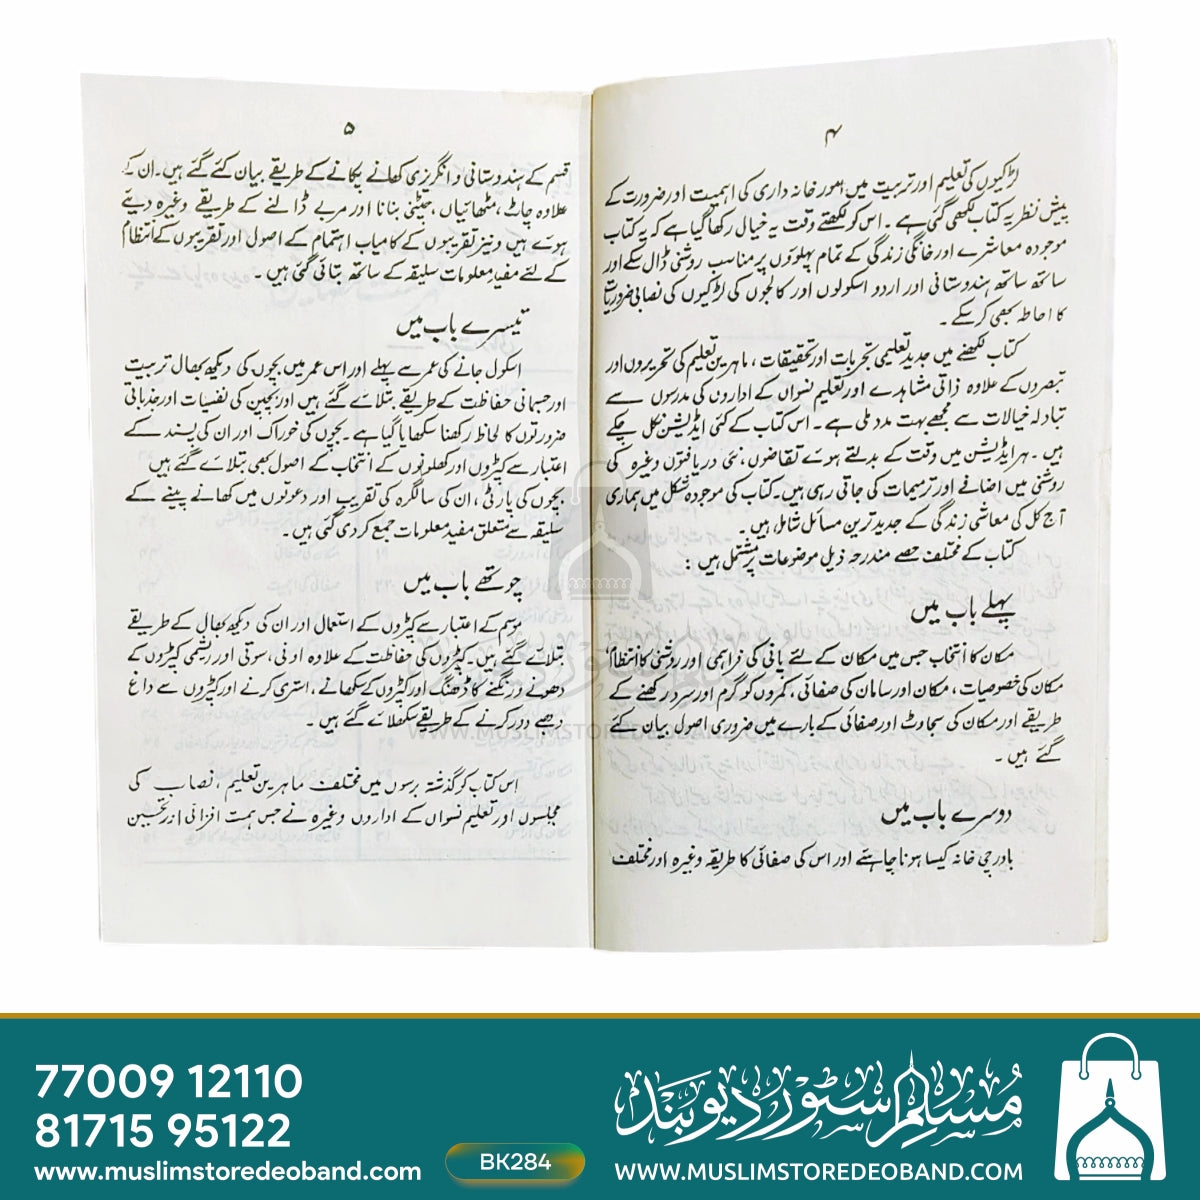 ۴
لڑکیوں کی تعلیم اور تربیت میں امور خانہ داری کی اہمیت اور ضرورت کے
پیش نظر یہ کتاب لکھی گئی ہے ۔ اس کو لکھتے وقت یہ خیال رکھا گیا ہے کہ یہ کتاب
موجودہ معاشرے اور خانگی زندگی کے تمام پہلوئوں پر مناسب روشنی ڈال سکے اور
ساتھ ساتھ ہندوستانی اور اردو اسکولوں اور کالجوں کی لڑکیوں کی نصابی ضروریات
کا احاطہ بھی کر سکے ۔
کتاب لکھنے میں جدید تعلیمی تجربات اور تحقیقات ، ماہرین تعلیم کی تحریروں اور
تبصروں کے علاوہ ذاتی مشاہدے اور تعلیم نسواں کے اداروں کی مدرسوں سے
تبادلہ خیالات سے مجھے بہت مدد ملی ہے ۔ اس کتاب کے کئی ایڈیشن نکل چکے
ہیں ۔ ہر ایڈیشن میں وقت کے بدلتے ہوئے تقاضوں ، نئی دریافتوں وغیرہ کی
روشنی میں اضافے اور ترمیمات کی جاتی رہی ہیں ۔ کتاب کی موجودہ شکل میں ہماری
آج کل کی معاشی زندگی کے جدید ترین مسائل شامل ہیں ۔
کتاب کے مختلف حصے مندرجہ ذیل موضوعات پر مشتمل ہیں :
پہلے باب میں
مکان کا انتخاب جس میں مکان کے لئے پانی کی فراہمی اور روشنی کا انتظام
مکان کی خصوصیات ، مکان اور سامان کی صفائی ، کمروں کو گرم اور سرد رکھنے کے
طریقے اور مکان کی سجاوٹ اور صفائی کے بارے میں ضروری اصول بیان کئے
گئے ہیں ۔
دوسرے باب میں
باورچی خانہ کیسا ہونا چاہئے اور اس کی صفائی کا طریقہ وغیرہ اور مختلف
۵
قسم کے ہندوستانی و انگریزی کھانے پکانے کے طریقے بیان کئے گئے ہیں ۔ ان کے
علاوہ چاٹ ، مٹھائیاں ، چٹنی بنانا اور مربے ڈالنے کے طریقے وغیرہ دیئے
ہوئے ہیں و نیز تقریبوں کے کامیاب اہتمام کے اصول اور تقریبوں کے انتظام
کے لئے مفید معلومات سلیقہ کے ساتھ بتائی گئی ہیں ۔
تیسرے باب میں
اسکول جانے کی عمر سے پہلے اور اس عمر میں بچوں کی دیکھ بھال تربیت
اور جسمانی حفاظت کے طریقے بتلائے گئے ہیں اور بچپن کی نفسیات اور جذباتی
ضرورتوں کا لحاظ رکھنا سکھایا گیا ہے ۔ بچوں کی خوراک اور ان کی پسند کے
اعتبار سے کپڑوں اور کھلونوں کے انتخاب کے اصول بھی بتلائے گئے ہیں
بچوں کی پارٹی ، ان کی سالگرہ کی تقریب اور دعوتوں میں کھانے پینے کے
سلیقہ سے متعلق مفید معلومات جمع کر دی گئی ہیں ۔
چوتھے باب میں
موسم کے اعتبار سے کپڑوں کے استعمال اور ان کی دیکھ بھال کے طریقے
بتلائے گئے ہیں ۔ کپڑوں کی حفاظت کے علاوہ اونی ، سوتی اور ریشمی کپڑوں کے
دھونے و رنگنے کا ڈھنگ اور کپڑوں کے سکھانے ، استری کرنے اور کپڑوں سے داغ
دھبے دور کرنے کے طریقے سکھلائے گئے ہیں ۔
اس کتاب کو گذشتہ برسوں میں مختلف ماہرین تعلیم ، نصاب کی
مجلسوں اور تعلیم نسواں کے اداروں وغیرہ نے جس ہمت افزائی اور تحسین
WWW.MUSLIMSTOREDEOBAND.COM
77009 12110
81715 95122
www.muslimstoredeoband.com
BK284
مسلم سٹور دیوبند
WWW.MUSLIMSTOREDEOBAND.COM